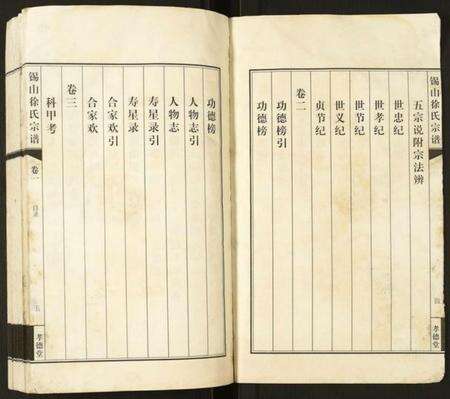 锡山徐氏宗谱
五宗说附宗法辨
世忠纪
世孝纪
世节纪
世义纪
贞节纪
卷二
功德榜引
功德榜
孝德堂
功德榜
人物志引
人物志
寿星录引
寿星录
合家欢引
合家欢
卷三
科甲考
锡山徐氏宗谱
卷一
目录
五
孝德堂